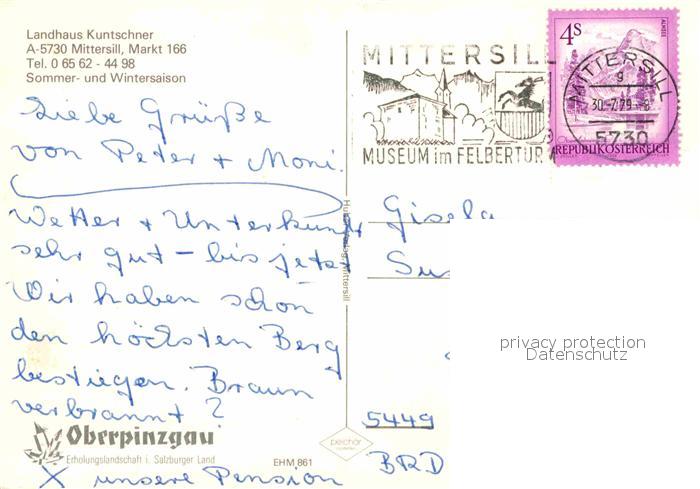 Landhaus Kuntschner
A-5730 Mittersill, Markt 166
Tel. 0 65 62 - 44 98
Sommer- und Wintersaison
Liebe Grüße
von Peter + Moni.
Wetter + Unterkunft
sehr gut - bis jetzt
Wir haben schon
den höchsten Berg
bestiegen. Braun
verbrannt?
Oberpinzgau
Erholungslandschaft i. Salzburger Land
EHM 861
X unsere Pension
MITTERSILL
MUSEUM im FELBERTUR
4S
ALMSEE
REPUBLIK ÖSTERREICH
MITTERSILL
g
30.-7.79.-8
5730
Gisela
Su
privacy protection
Datenschutz
5449
BRD